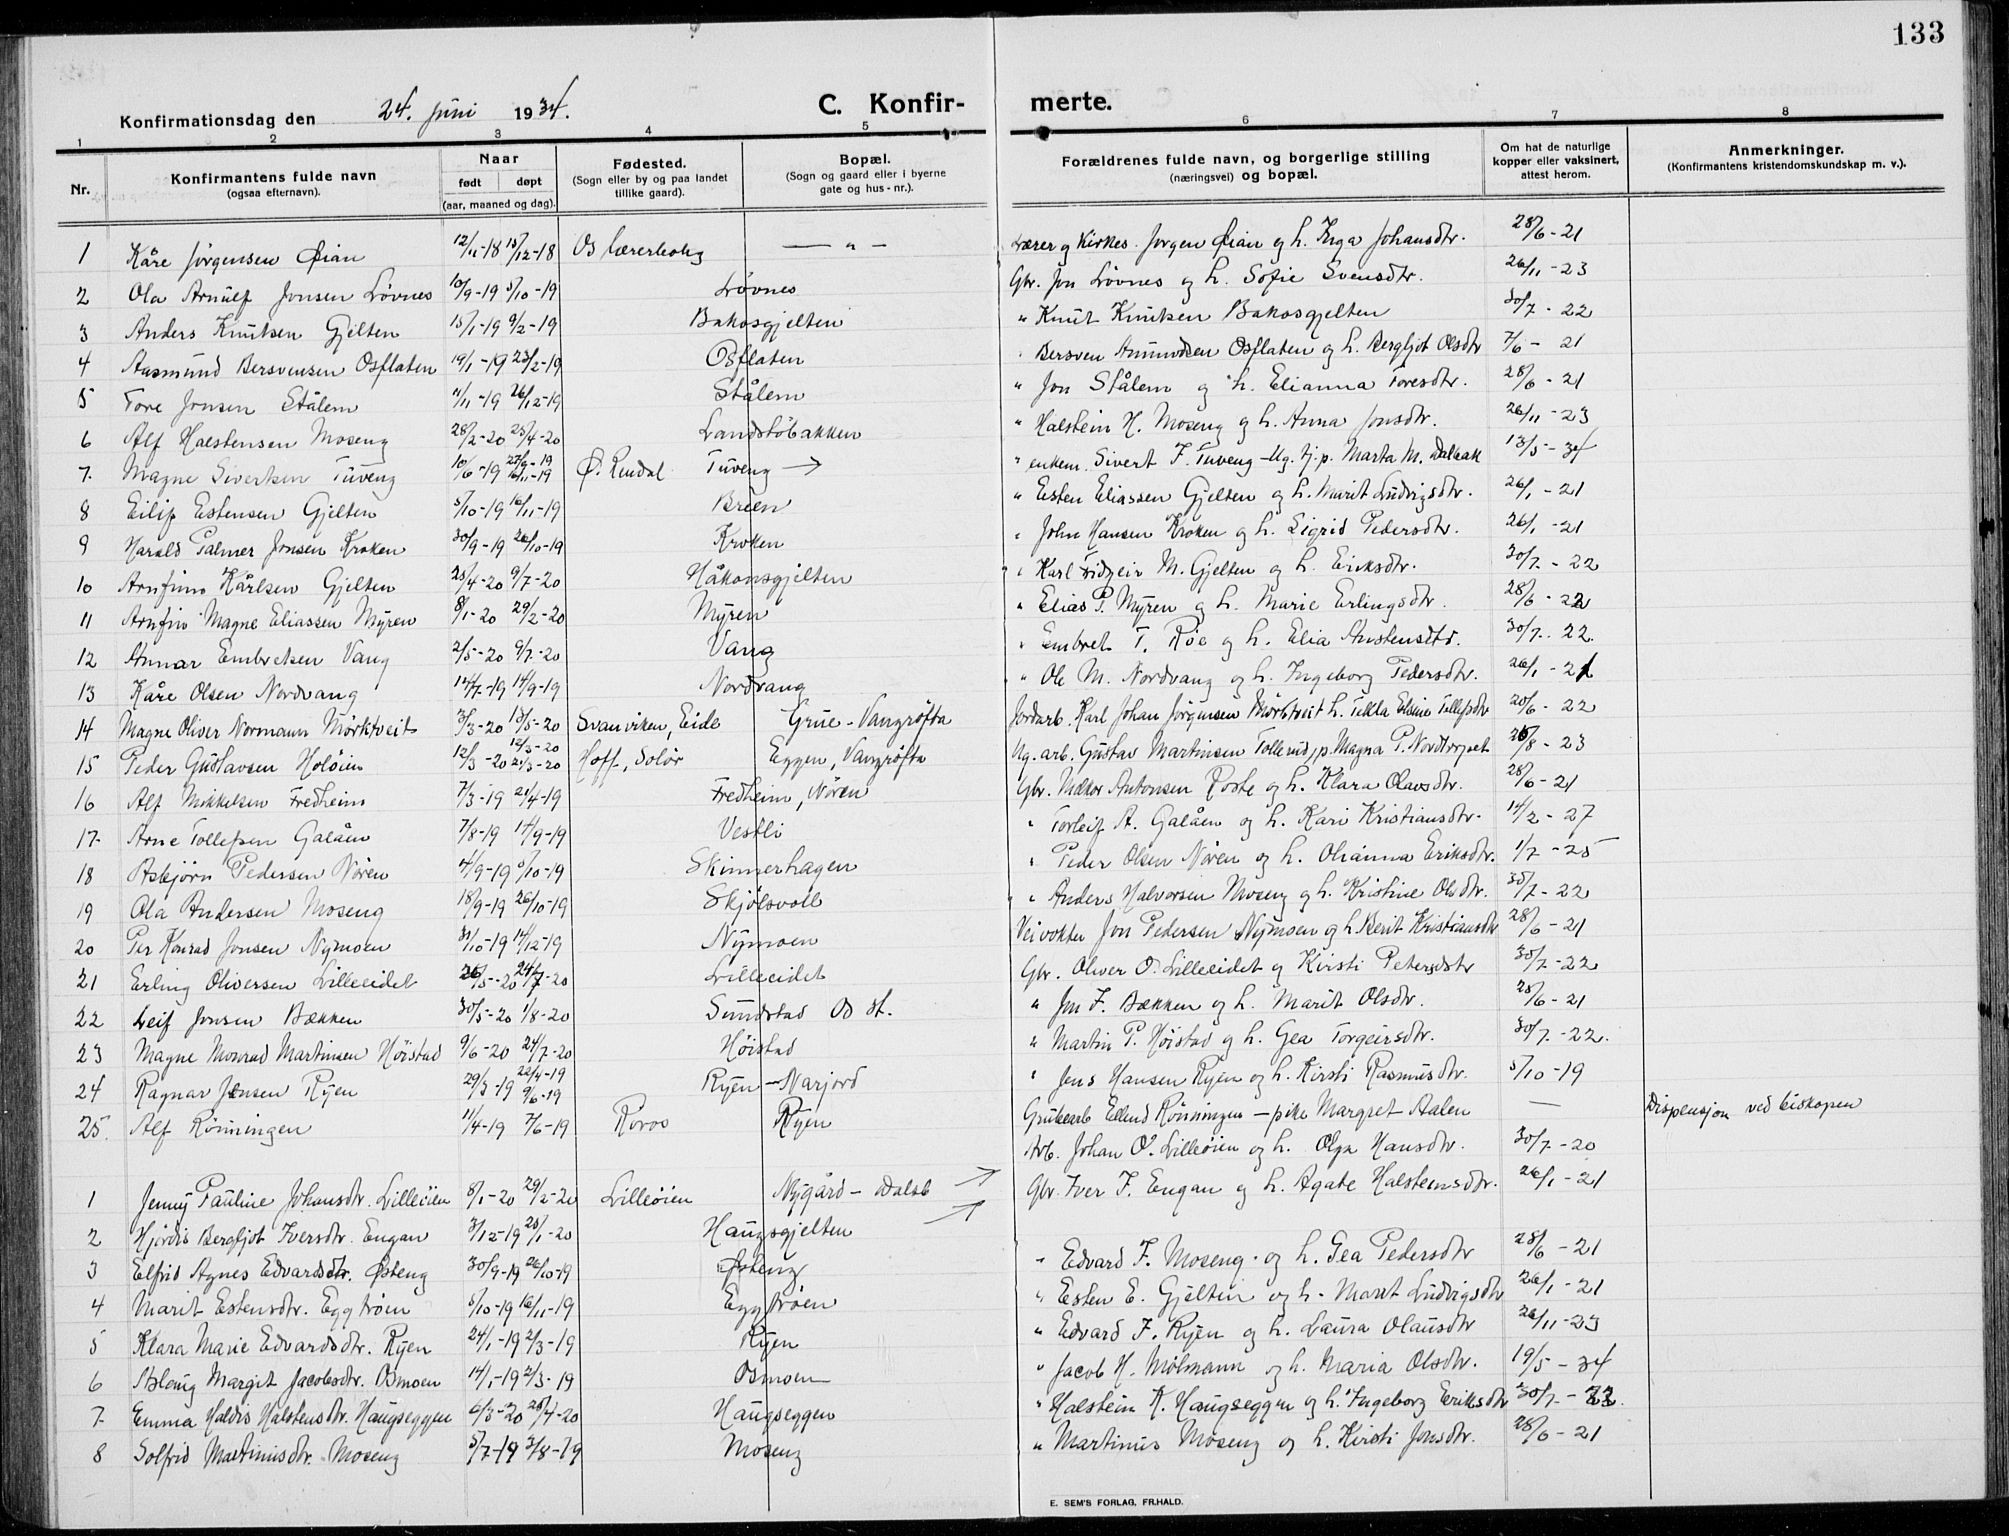 133
Konfirmationsdag den 24. juni 1934. C. Konfir- merte.
1 2 3 4 5 6 7 8
Nr. Konfirmantens fulde navn (ogsaa efternavn). Naar født døpt (aar, maaned og dag). Fødested. (Sogn eller by og paa landet tillike gaard). Bopæl. (Sogn og gaard eller i byerne gate og hus-nr.). Forældrenes fulde navn, og borgerlige stilling (næringsvei) og bopæl. Om hat de naturlige kopper eller vaksinert, attest herom. Anmerkninger. (Konfirmantens kristendomskundskap m. v.).
1 Kåre Jörgensen Øian 12/11-18 15/12-18 Os lærerbolig — " — Lærer og Kirkes. Jørgen Øian og h. Inga Johansdtr. 28/6-21
2 Ola Arnulf Jonsen Lövnes 10/9-19 5/10-19 Lövnes Gbr. Jon Lövnes og h. Sofie Svensdtr. 26/11-23
3 Anders Knutsen Gjelten 15/1-19 9/2-19 Bakosgjelten " Knut Knutsen Bakosgjelten 30/7-22
4 Aasmund Bersvensen Osflaten 19/1-19 23/2-19 Osflaten " Bersven Amundsen Osflaten og h. Bergljot Olsdtr 7/6-21
5 Tore Jonsen Stålem 11/11-19 26/12-19 Stålem " Jon Stålem og h. Elianna Toresdtr. 28/6-21
6 Alf Halstensen Moseng 28/2-20 25/4-20 Landstöbakken " Halstein H. Moseng og h. Anna Jonsdtr. 26/11-23
7. Magne Sivertsen Tuveng 10/6-19 27/9-19 16/11-19 Ø. Rendal Tuveng → " enkem. Sivert F. Tuveng - Ug. tj.p. Marta M. Dalbak 13/5-34
8 Eilif Estensen Gjelten 5/10-19 16/11-19 Breen " Esten Eliassen Gjelten og h. Marit Ludvigsdtr. 26/1-21
9 Harald Palmer Jonsen Kroken 30/9-19 26/10-19 Kroken " John Hansen Kroken og h. Sigrid Pedersdtr. 26/1-21
10 Arnfinn Kårlsen Gjelten 25/4-20 9/7-20 Håkonsgjelten " Karl Fidgeir M. Gjelten og h. Eriksdtr. 30/7-22
11 Arnfin Magne Eliassen Myren 8/1-20 29/2-20 Myren " Elias P. Myren og h. Marie Erlingsdtr. 28/6-22
12 Annar Embretsen Vang 2/5-20 9/7-20 Vang " Embret T. Röe og h. Elia Anstensdtr. 30/7-22.
13 Kåre Olsen Nordvang 12/7-19 14/9-19 Nordvang " Ole M. Nordvang og h. Ingeborg Pedersdtr. 26/1-21
14 Magne Oliver Normann Mörktveit 3/3-20 13/5-20 Svanviken, Eide Grue - Vangröfta Jordarb. Karl Johan Jörgensen Mörktveit h. Tekla Elsine Tollefsdtr 20/6-22
15 Peder Gustavsen Holöien 12/3-20 12/3-20 21/3-20 Hoff, Solör Eggen, Vangröfta Ug. arb. Gustav Martinsen Tollerud, p. Magna P. Nordtorpet 26/8-23
16 Alf Mikkelsen Fredheim 7/3-19 21/4-19 Fredheim, Nören Gbr. Mikkor Antonsen Roste og h. Klara Olavsdtr. 28/6-21
17. Arne Tollefsen Galåen 7/8-19 14/9-19 Vestli " Torleif A. Galåen og h. Kari Kristiansdtr. 14/2-27
18 Asbjörn Pedersen Nören 4/9-19 5/10-19 Skinnerhagen " Peder Olsen Nören og h. Olianna Eriksdtr. 1/7-25
19 Ola Andersen Moseng 18/9-19 26/10-19 Skjölsvoll " Anders Halvorsen Moseng og h. Kristine Olsdtr. 30/7-22
20 Per Konrad Jonsen Nymoen 31/10-19 14/12-19 Nymoen Veivokter Jon Pedersen Nymoen og h. Berit Kristiansdtr 28/6-21
21 Erling Oliversen Lilleeidet 26/5-20 24/7-20 Lilleeidet Gbr. Oliver O. Lilleeidet og Kirsti Petersdtr 30/7-22
22 Leif Jonsen Bækken 30/5-20 1/8-20 Sundstad Os st. " Jon F. Bækken og h. Marit Olsdtr. 28/6-21
23 Magne Monrad Martinsen Höistad 9/6-20 24/7-20 Höistad " Martin P. Höistad og h. Gea Torgeirsdtr. 30/7-22.
24 Ragnar Jensen Ryen 29/3-19 22/4-19 9/6-19 Ryen - Narjord " Jens Hansen Ryen og h. Kirsti Rasmusdtr. 5/10-19
25. Alf Rönningen 11/4-19 7/6-19 Röros Ryen Grubearb Ellend Rönningen - pike Margret Aalen — Dispensjon ved biskopen
1 Jenny Pauline Johansdtr. Lilleöien 8/1-20 29/2-20 Lilleöien Nygård - Dalsb → Arb. Johan O. Lilleöien og h. Olga Hansdtr. 30/7-20
2 Hjördis Bergljot Iversdtr. Engan 3/12-19 25/1-20 Haugsgjelten → Gbr. Iver F. Engan og h. Agate Halsteinsdtr. 26/1-21
3 Elfrid Agnes Edvardsdtr. Østeng 30/9-19 26/10-19 Østeng " Edvard F. Moseng og h. Gea Pedersdtr 28/6-21
4 Marit Estensdtr. Eggtröen 5/10-19 16/11-19 Eggtröen " Esten E. Gjelten og h. Marit Ludvigsdtr 26/1-21
5 Klara Marie Edvardsdtr. Ryen 24/1-19 2/3-19 Ryen " Edvard F. Ryen og h. Laura Olausdtr 26/11-23
6 Aslaug Margit Jacobsdtr. Osmoen 14/1-19 2/3-19 Osmoen " Jacob H. Mölmann og h. Maria Olsdtr. 19/5-34
7. Emma Haldis Halstensdtr. Haugseggen 6/3-20 25/4-20 Haugseggen " Halstein K. Haugseggen og h. Ingeborg Eriksdtr 30/7-22.
8 Solfrid Martinusdtr. Moseng 5/7-19 3/8-19 Moseng " Martinus Moseng og h. Kirsti Jonsdtr. 28/6-21
E. SEM'S FORLAG, FR.HALD.